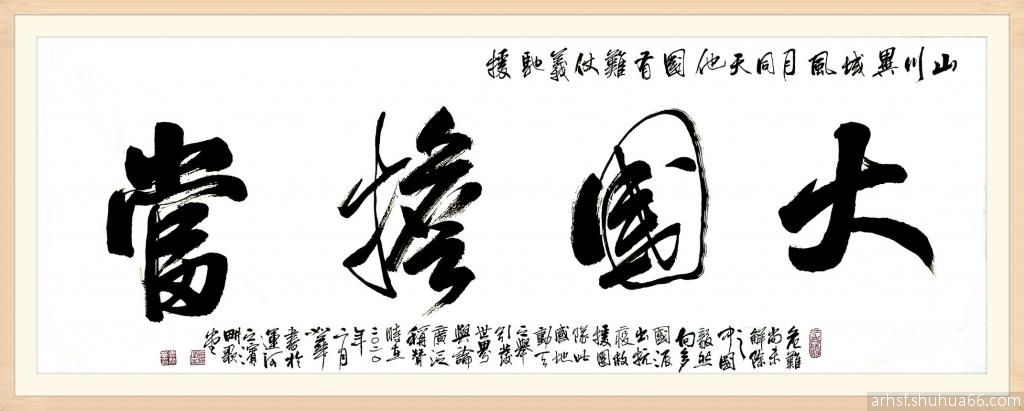 山川異域風月同天他國有難仗義馳援
大國擔當
危難
尚未
解除
之
中國
毅然
向多
國派
出抗
疫救
援團
隊此
感地
動天
之舉
引發
世界
輿論
廣泛
稱贊
時在
二〇二〇
年
書於
運河
之濱
arhsf.shuhua66.com